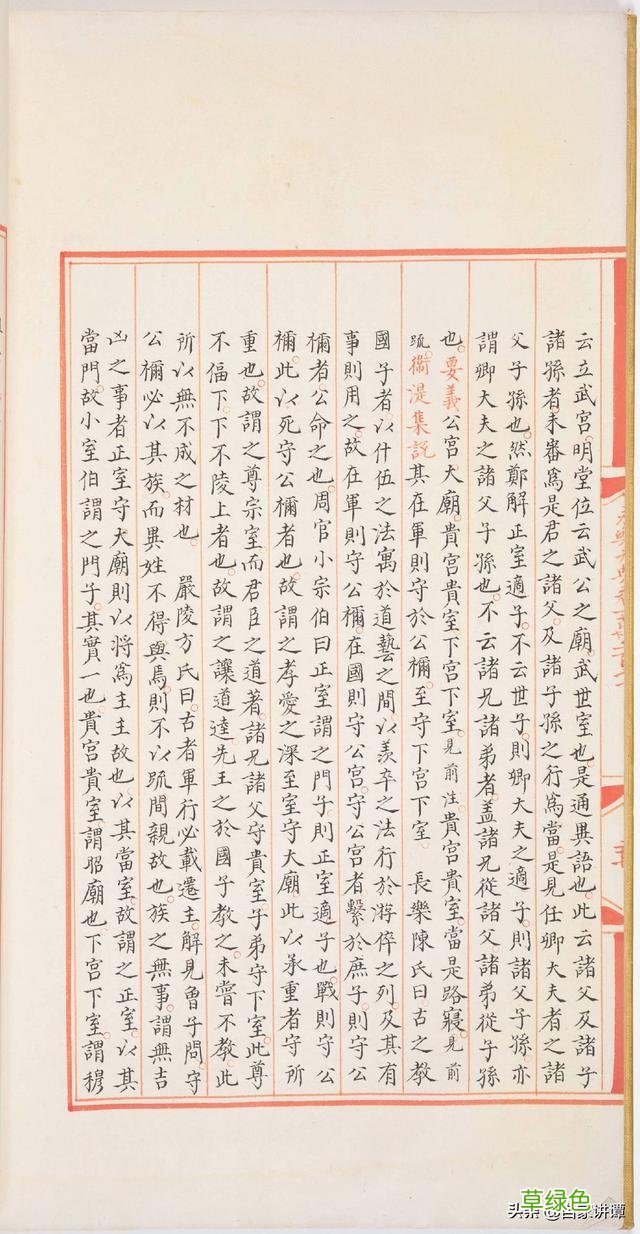 云立武宫。明堂位云武公之廟。武世室也。是通異語也。此云諸父及諸子
諸孫者。未審為是君之諸父。及諸子孫之行為當。是見任卿大夫者之諸
父子孫也。然鄭解正室適子。不云世子。則卿大夫之適子。則諸父子孫。亦
謂卿大夫之諸父子孫也。不云諸兄諸弟者。盖諸兄從諸父。諸弟從子孫
也。要義公宫大廟。貴宫貴室下宫下室。見前注貴宫貴室。當是路寢。見前
疏。衛湜集說其在軍則守於公禰。至守下宫下室 長樂陳氏曰古之教
國子者。以什伍之法寓於道藝之間。以羨卒之法行於游倅之列。及其有
事則用之。故在軍則守公禰。在國則守公宫。守公宫者繫於庶子。則守公
禰者。公命之也。周官小宗伯曰正室謂之門子。則正室適子也。戰則守公
禰。此以死守公禰者也。故謂之孝愛之深至室守大廟。此以承重者守所
重也。故謂之尊宗室。而君臣之道著。諸兄諸父守貴室。子弟守下室。此尊
不偪下。下不陵上者也。故謂之讓道達。先王之於國子教之。未嘗不教。此
所以無不成之材也 嚴陵方氏曰。古者軍行必載遷主。解見曾子問。守
公禰必以其族。而異姓不得與焉。則不以疏間親故也。族之無事。謂無吉
凶之事者。正室守大廟則以將為主主故也。以其當室。故謂之正室。以其
當門。故小室伯謂之門子。其實一也。貴宫貴室。謂昭廟也。下宫下室。謂穆
草绿色